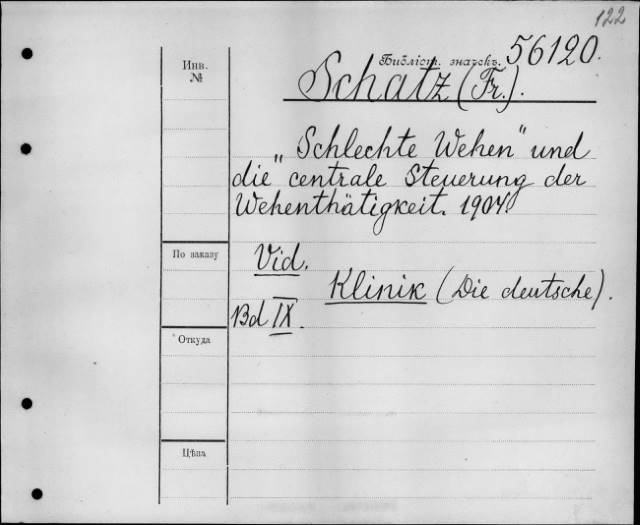 122
Инв. №
Бібліот. значекъ. 56120.
Schatz (Fr.).
„Schlechte Wehen“ und
die centrale Steuerung der
Wehenthätigkeit. 1904.
По заказу
Vid.
Klinik (Die deutsche).
Bd IX.
Откуда
Цѣна